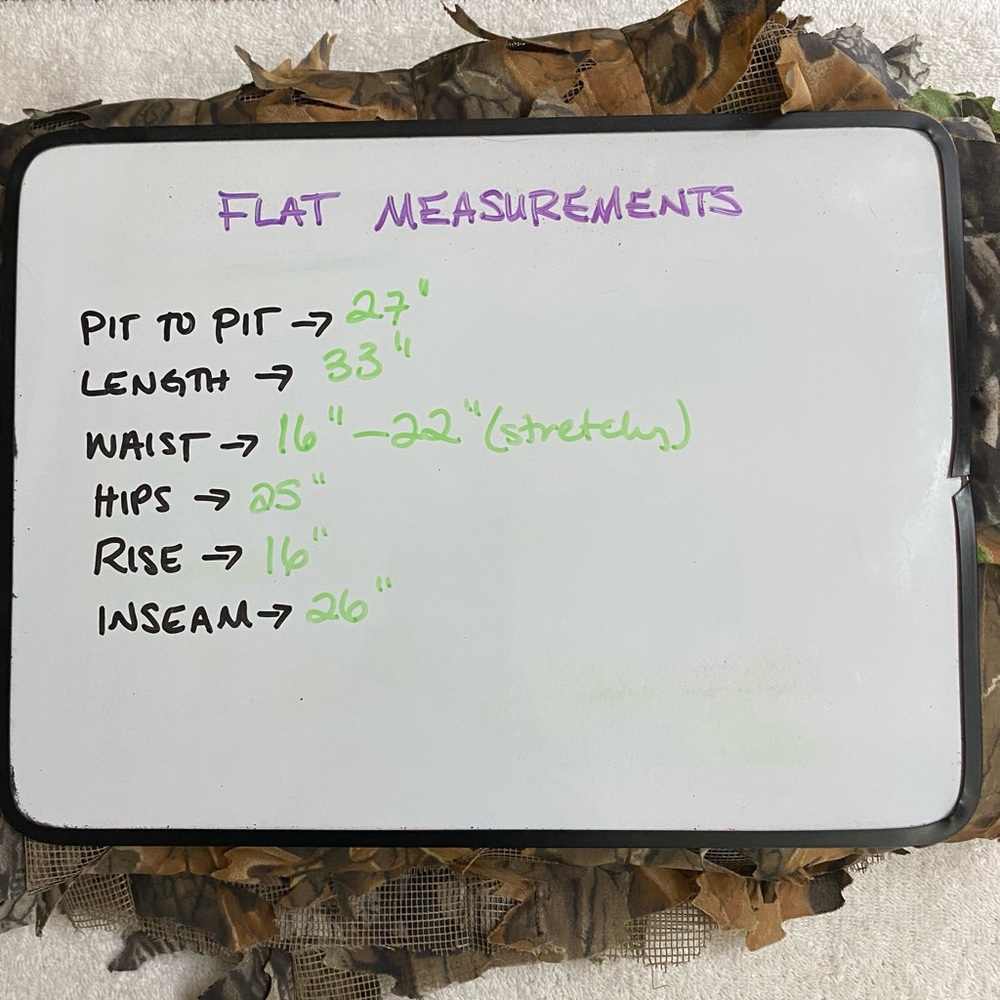 FLAT MEASUREMENTS
PIT TO PIT → 27"
LENGTH → 33"
WAIST → 16"-22" (stretchy)
HIPS → 25"
RISE → 16"
INSEAM → 26"